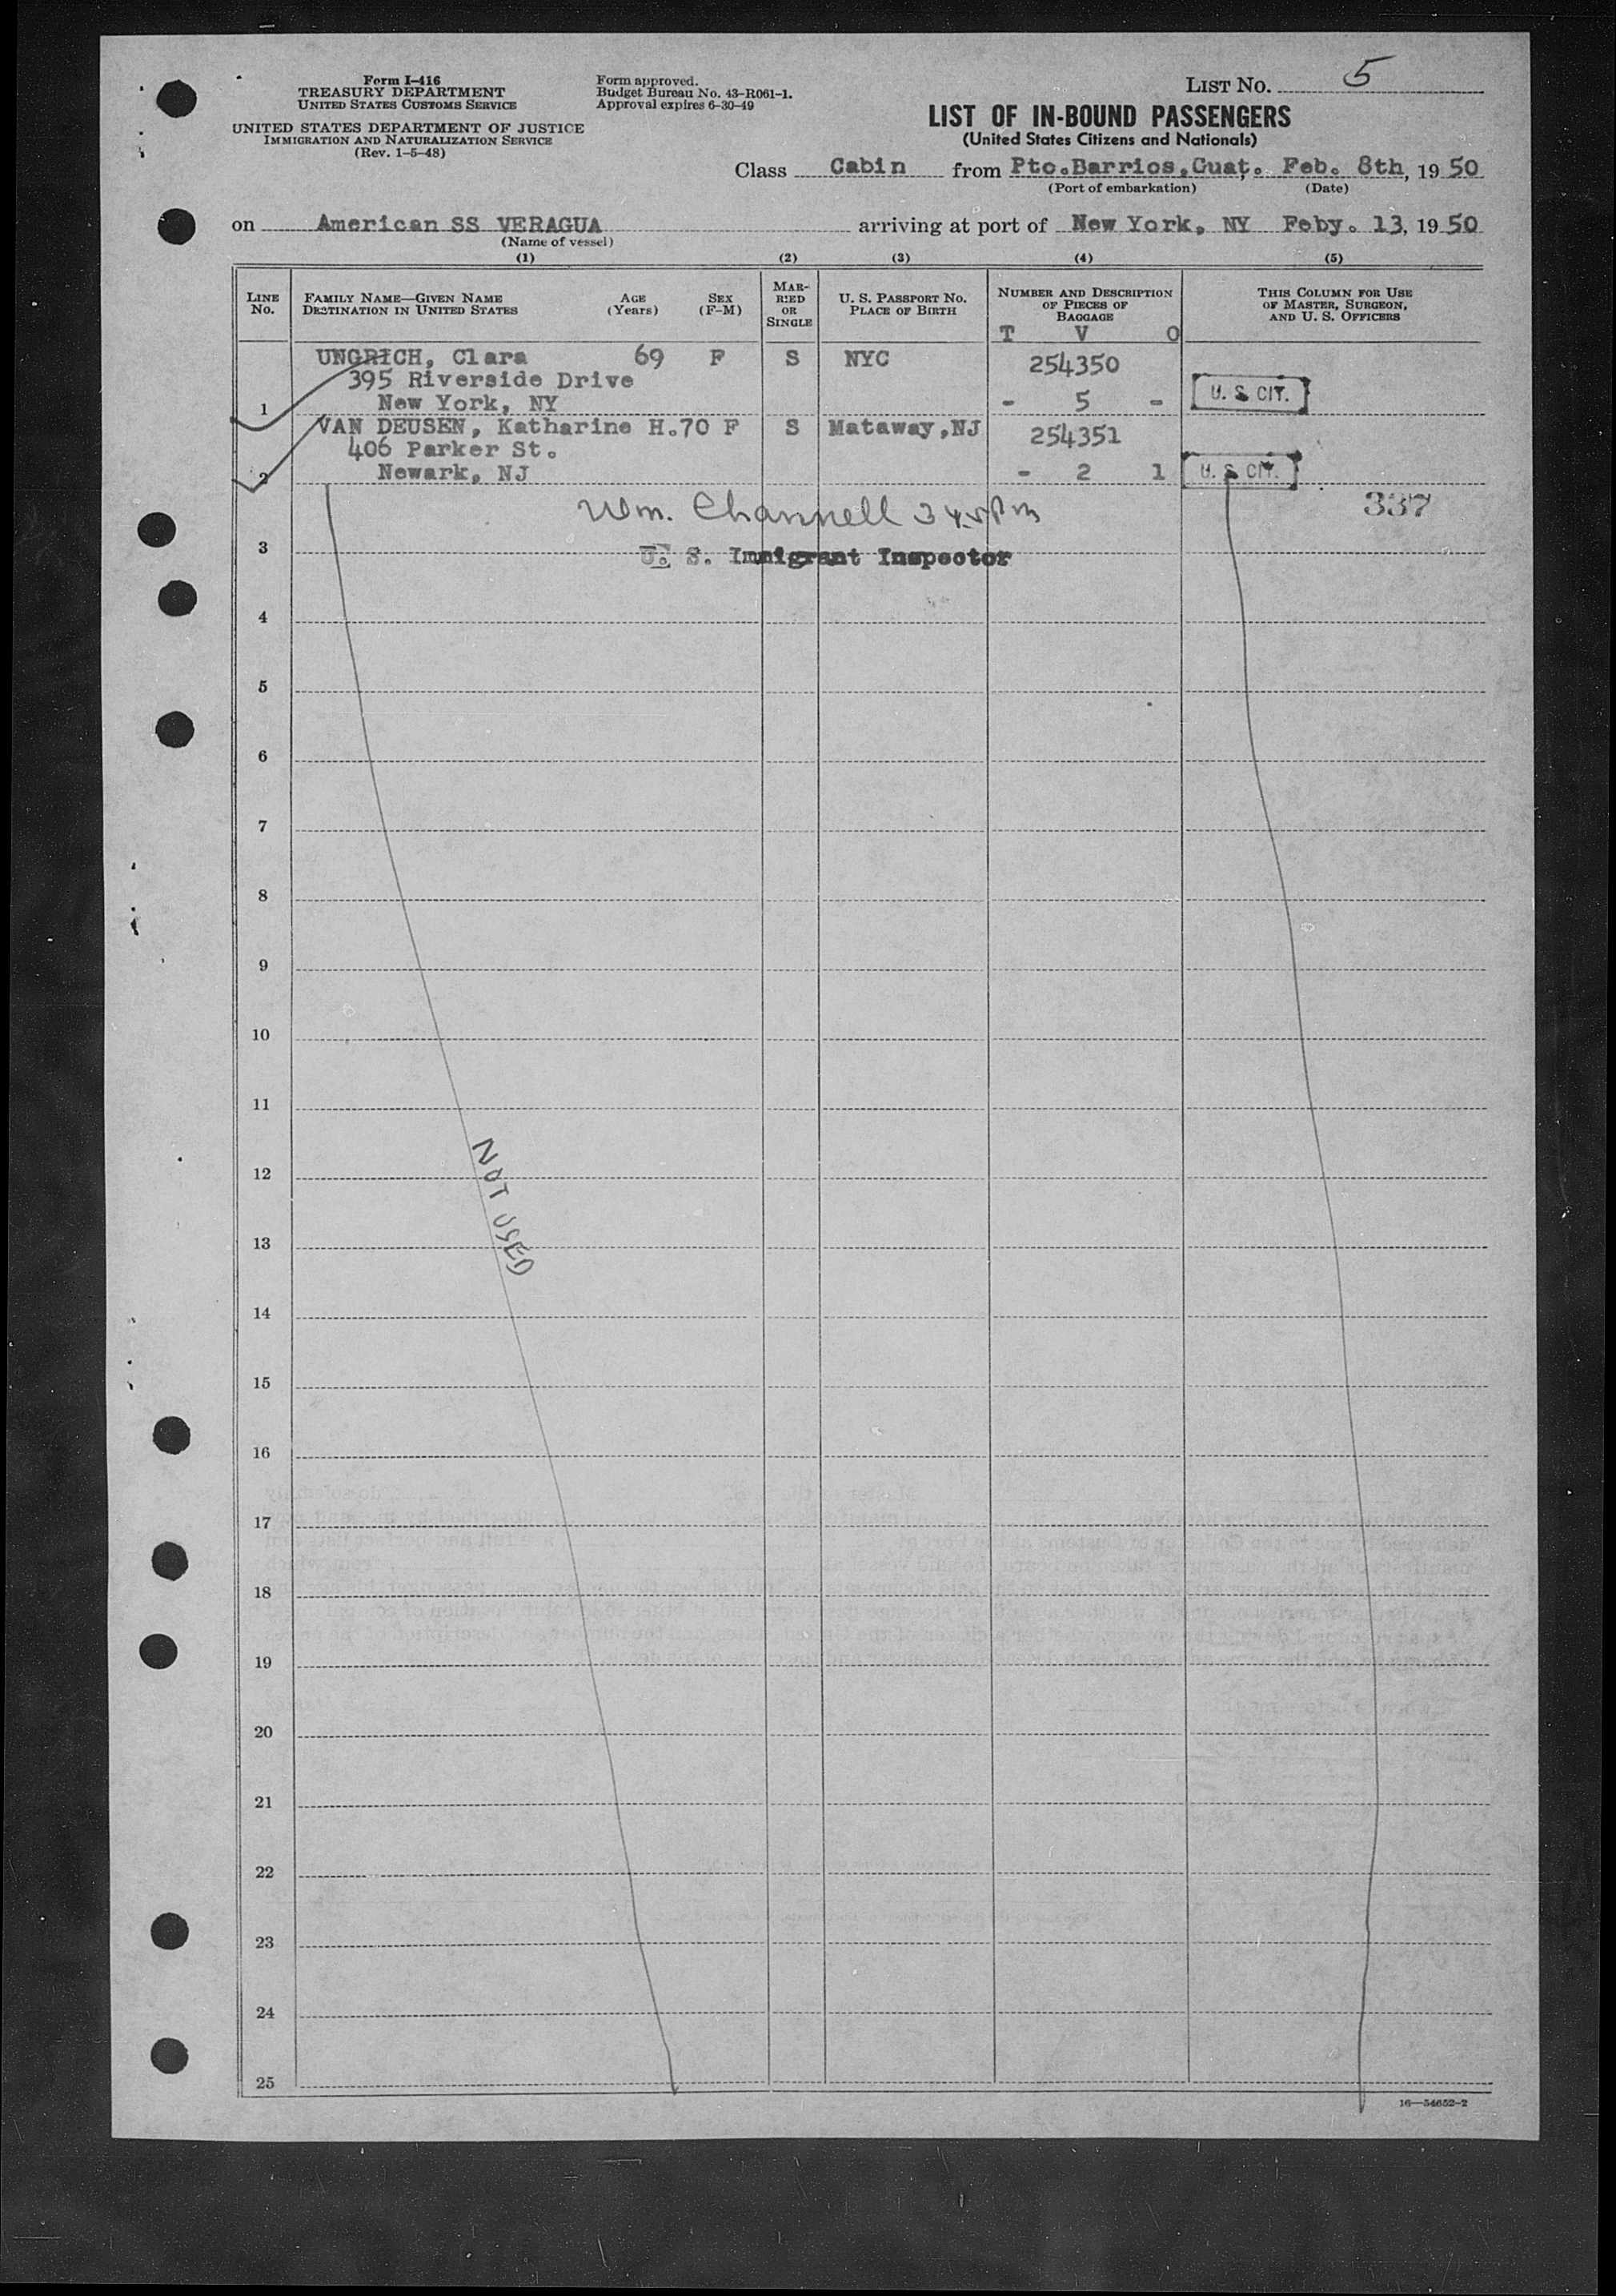 Form I-416
TREASURY DEPARTMENT
UNITED STATES CUSTOMS SERVICE
UNITED STATES DEPARTMENT OF JUSTICE
IMMIGRATION AND NATURALIZATION SERVICE
(Rev. 1-5-48)
Form approved.
Budget Bureau No. 43-R061-1.
Approval expires 6-30-49
LIST NO. 5
LIST OF IN-BOUND PASSENGERS
(United States Citizens and Nationals)
Class Cabin from Pto.Barrios,Guat. Feb. 8th, 19 50
(Port of embarkation) (Date)
on American SS VERAGUA arriving at port of New York, NY Feby. 13, 19 50
(Name of vessel)
(1) (2) (3) (4) (5)
LINE No.
FAMILY NAME—GIVEN NAME
DESTINATION IN UNITED STATES
AGE (Years)
SEX (F-M)
MAR-
RIED
OR
SINGLE
U. S. PASSPORT NO.
PLACE OF BIRTH
NUMBER AND DESCRIPTION
OF PIECES OF
BAGGAGE
T V O
THIS COLUMN FOR USE
OF MASTER, SURGEON,
AND U. S. OFFICERS
UNGRICH, Clara 69 F S NYC 254350
395 Riverside Drive
1 New York, NY - 5 - U. S. CIT.
VAN DEUSEN, Katharine H.70 F S Mataway,NJ 254351
406 Parker St.
2 Newark, NJ - 2 1 U. S. CIT.
Wm. Channell 345Pm 337
3 U. S. Immigrant Inspector
4
5
6
7
8
9
10
11
12
NOT USED
13
14
15
16
17
18
19
20
21
22
23
24
25
16—54652-2